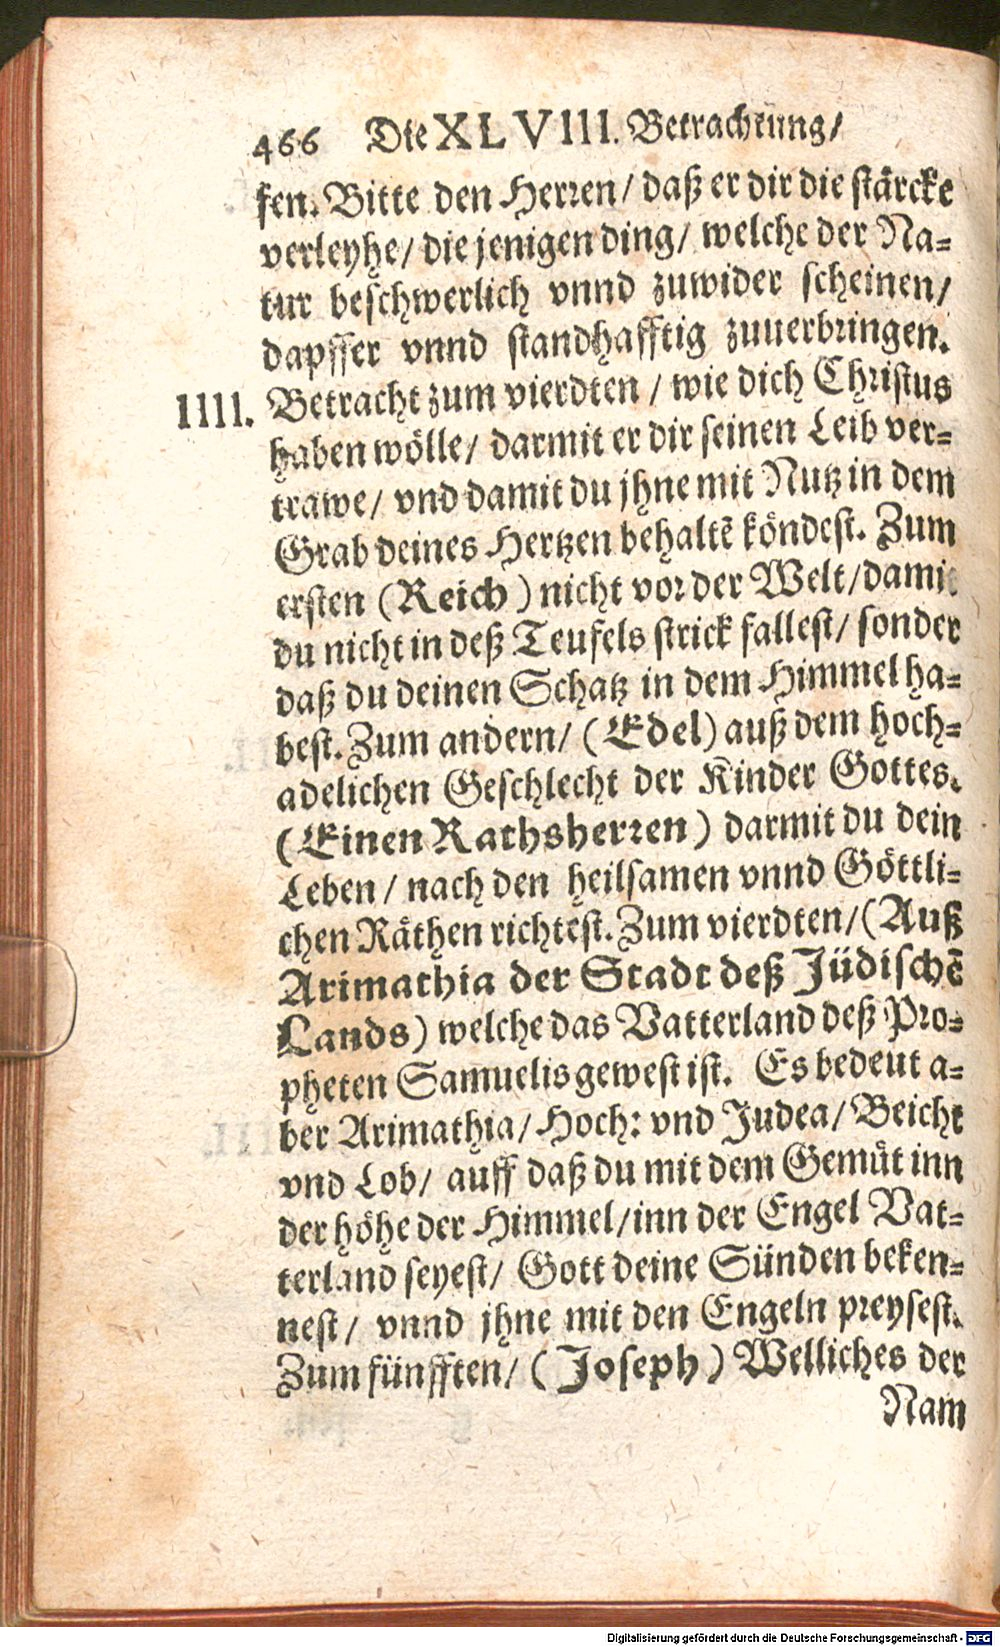 466 Die XLVIII. Betrachtung/
fen. Bitte den Herren/ daß er dir die stärcke
verleyhe/ die jenigen ding/ welche der Na-
tur beschwerlich vnnd zuwider scheinen/
dapffer vnnd standhafftig zuuerbringen.
IIII. Betracht zum vierdten / wie dich Christus
haben wölle/ darmit er dir seinen Leib ver-
trawe/ vnd damit du jhne mit Nutz in dem
Grab deines Hertzen behaltē köndest. Zum
ersten (Reich) nicht vor der Welt/damit
du nicht in deß Teufels strick fallest/ sonder
daß du deinen Schatz in dem Himmel ha-
best. Zum andern/ (Edel) auß dem hoch-
adelichen Geschlecht der Kinder Gottes.
(Einen Rathsherren) darmit du dein
Leben/ nach den heilsamen vnnd Göttli-
chen Räthen richtest. Zum vierdten/(Auß
Arimathia der Stadt deß Jüdischē
Lands) welche das Vatterland deß Pro-
pheten Samuelis gewest ist. Es bedeut a-
ber Arimathia/ Hoch: vnd Judea/ Beicht
vnd Lob/ auff daß du mit dem Gemüt inn
der höhe der Himmel/inn der Engel Vat-
terland seyest/ Gott deine Sünden beken-
nest/ vnnd jhne mit den Engeln preysest.
Zum fünfften/ (Joseph) Welliches der
Nam
Digitalisierung gefördert durch die Deutsche Forschungsgemeinschaft - DFG